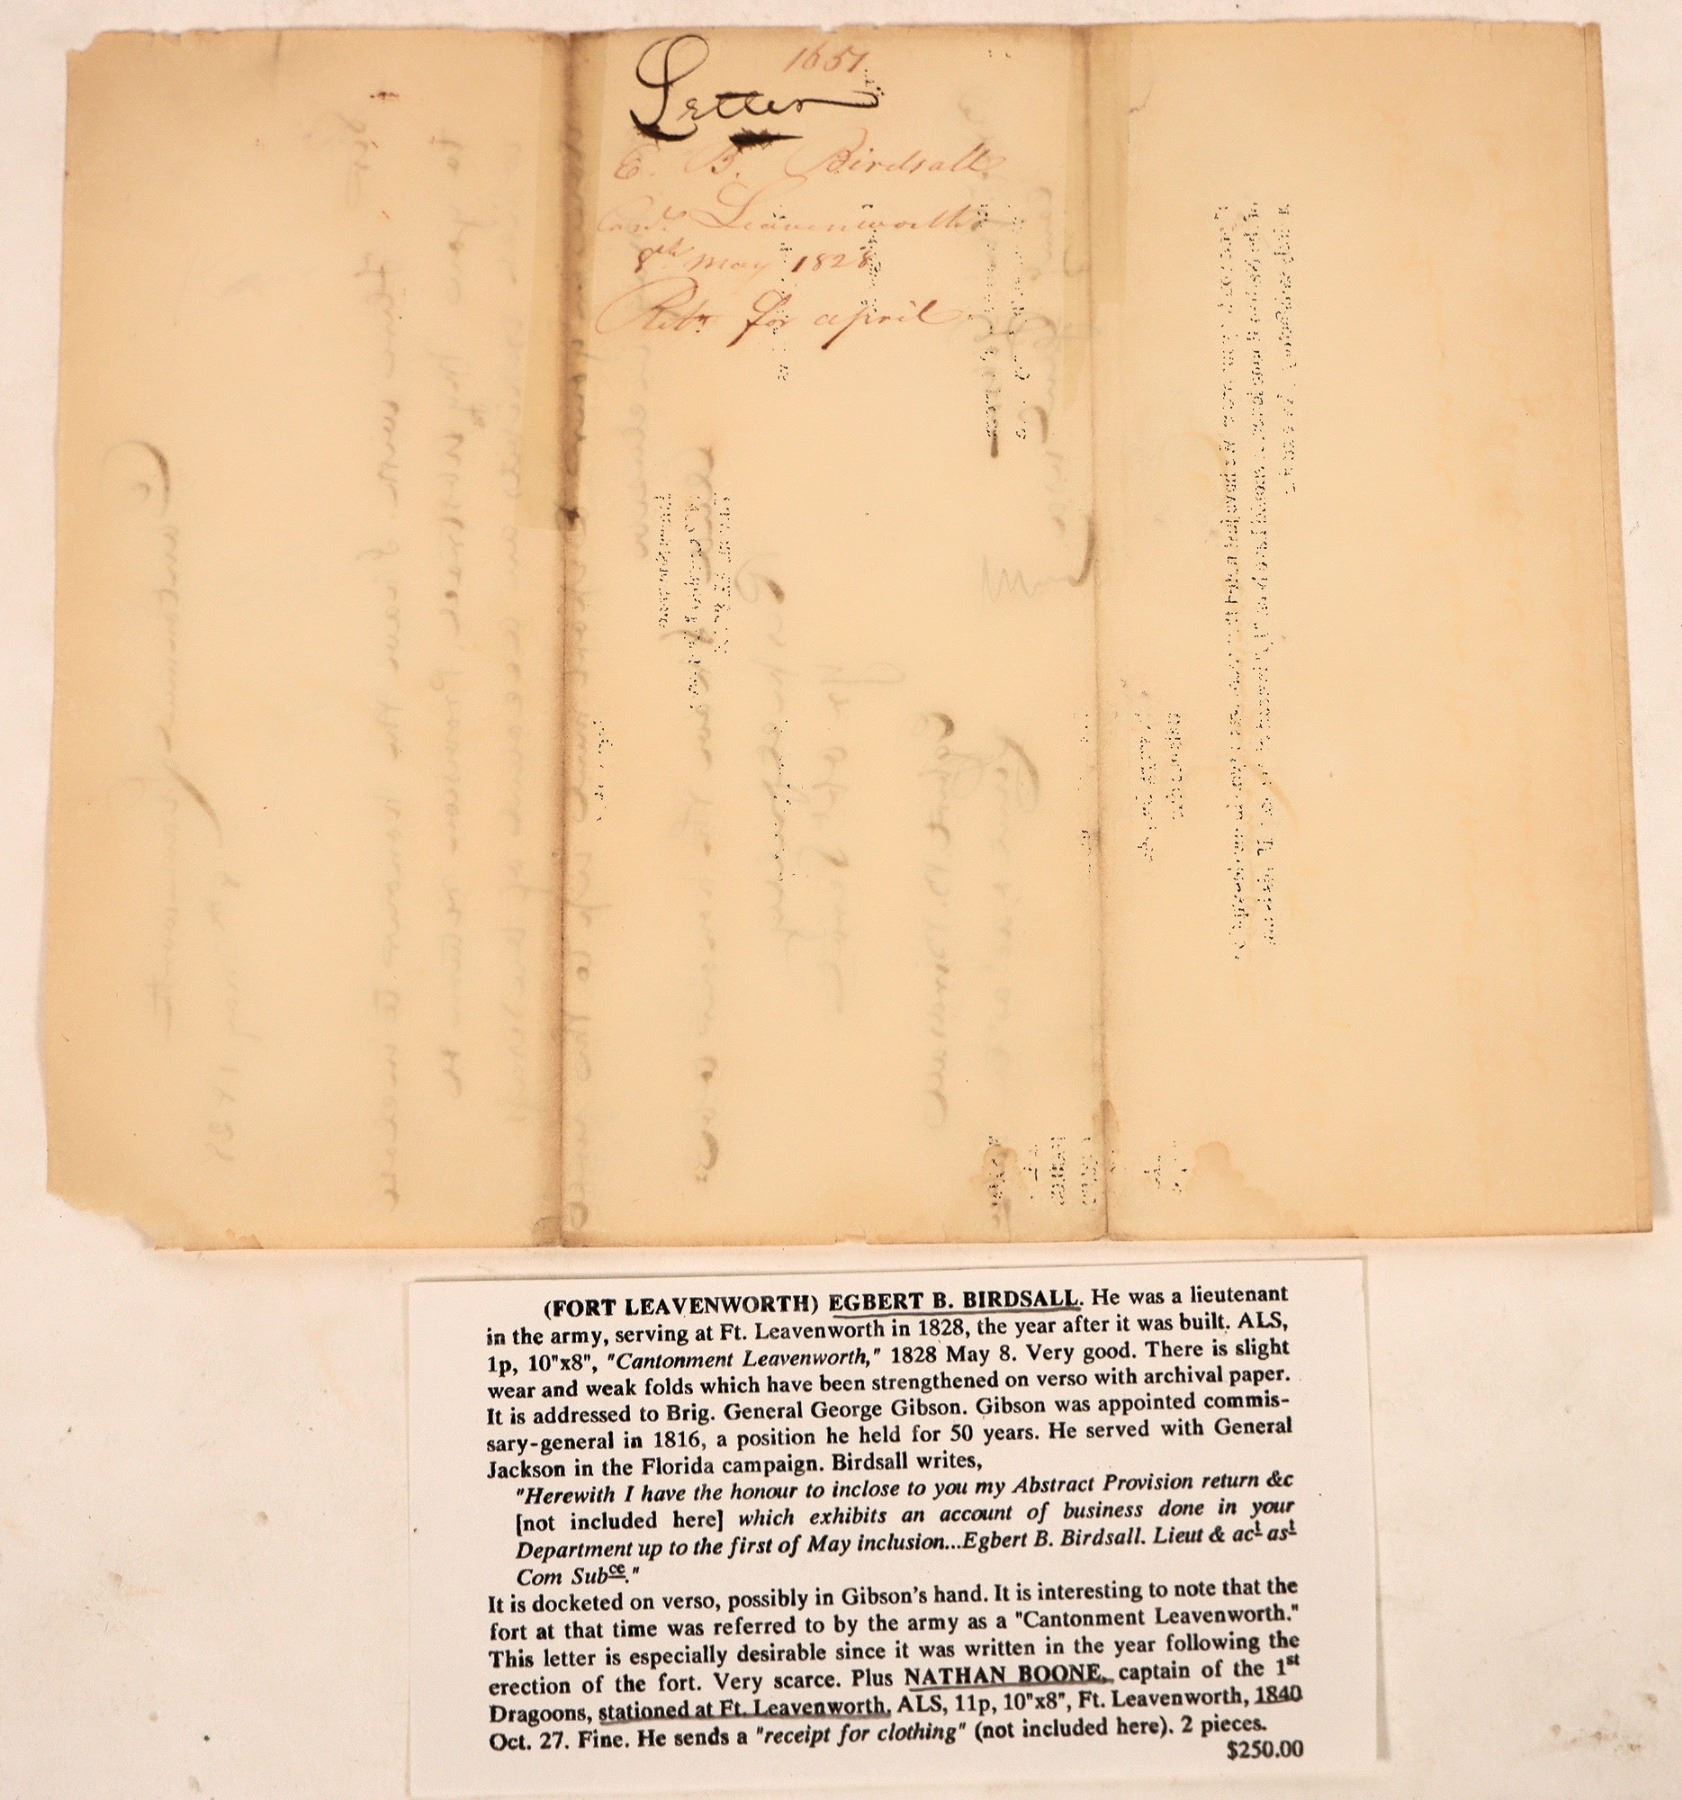 1651
Letter
E. B. Birdsall
Cant. Leavenworth
8th May 1828
Retn for april
(FORT LEAVENWORTH) EGBERT B. BIRDSALL. He was a lieutenant
in the army, serving at Ft. Leavenworth in 1828, the year after it was built. ALS,
1p, 10"x8", "Cantonment Leavenworth," 1828 May 8. Very good. There is slight
wear and weak folds which have been strengthened on verso with archival paper.
It is addressed to Brig. General George Gibson. Gibson was appointed commis-
sary-general in 1816, a position he held for 50 years. He served with General
Jackson in the Florida campaign. Birdsall writes,
"Herewith I have the honour to inclose to you my Abstract Provision return &c
[not included here] which exhibits an account of business done in your
Department up to the first of May inclusion...Egbert B. Birdsall. Lieut & act ast
Com Subce."
It is docketed on verso, possibly in Gibson's hand. It is interesting to note that the
fort at that time was referred to by the army as a "Cantonment Leavenworth."
This letter is especially desirable since it was written in the year following the
erection of the fort. Very scarce. Plus NATHAN BOONE, captain of the 1st
Dragoons, stationed at Ft. Leavenworth, ALS, 11p, 10"x8", Ft. Leavenworth, 1840
Oct. 27. Fine. He sends a "receipt for clothing" (not included here). 2 pieces.
$250.00